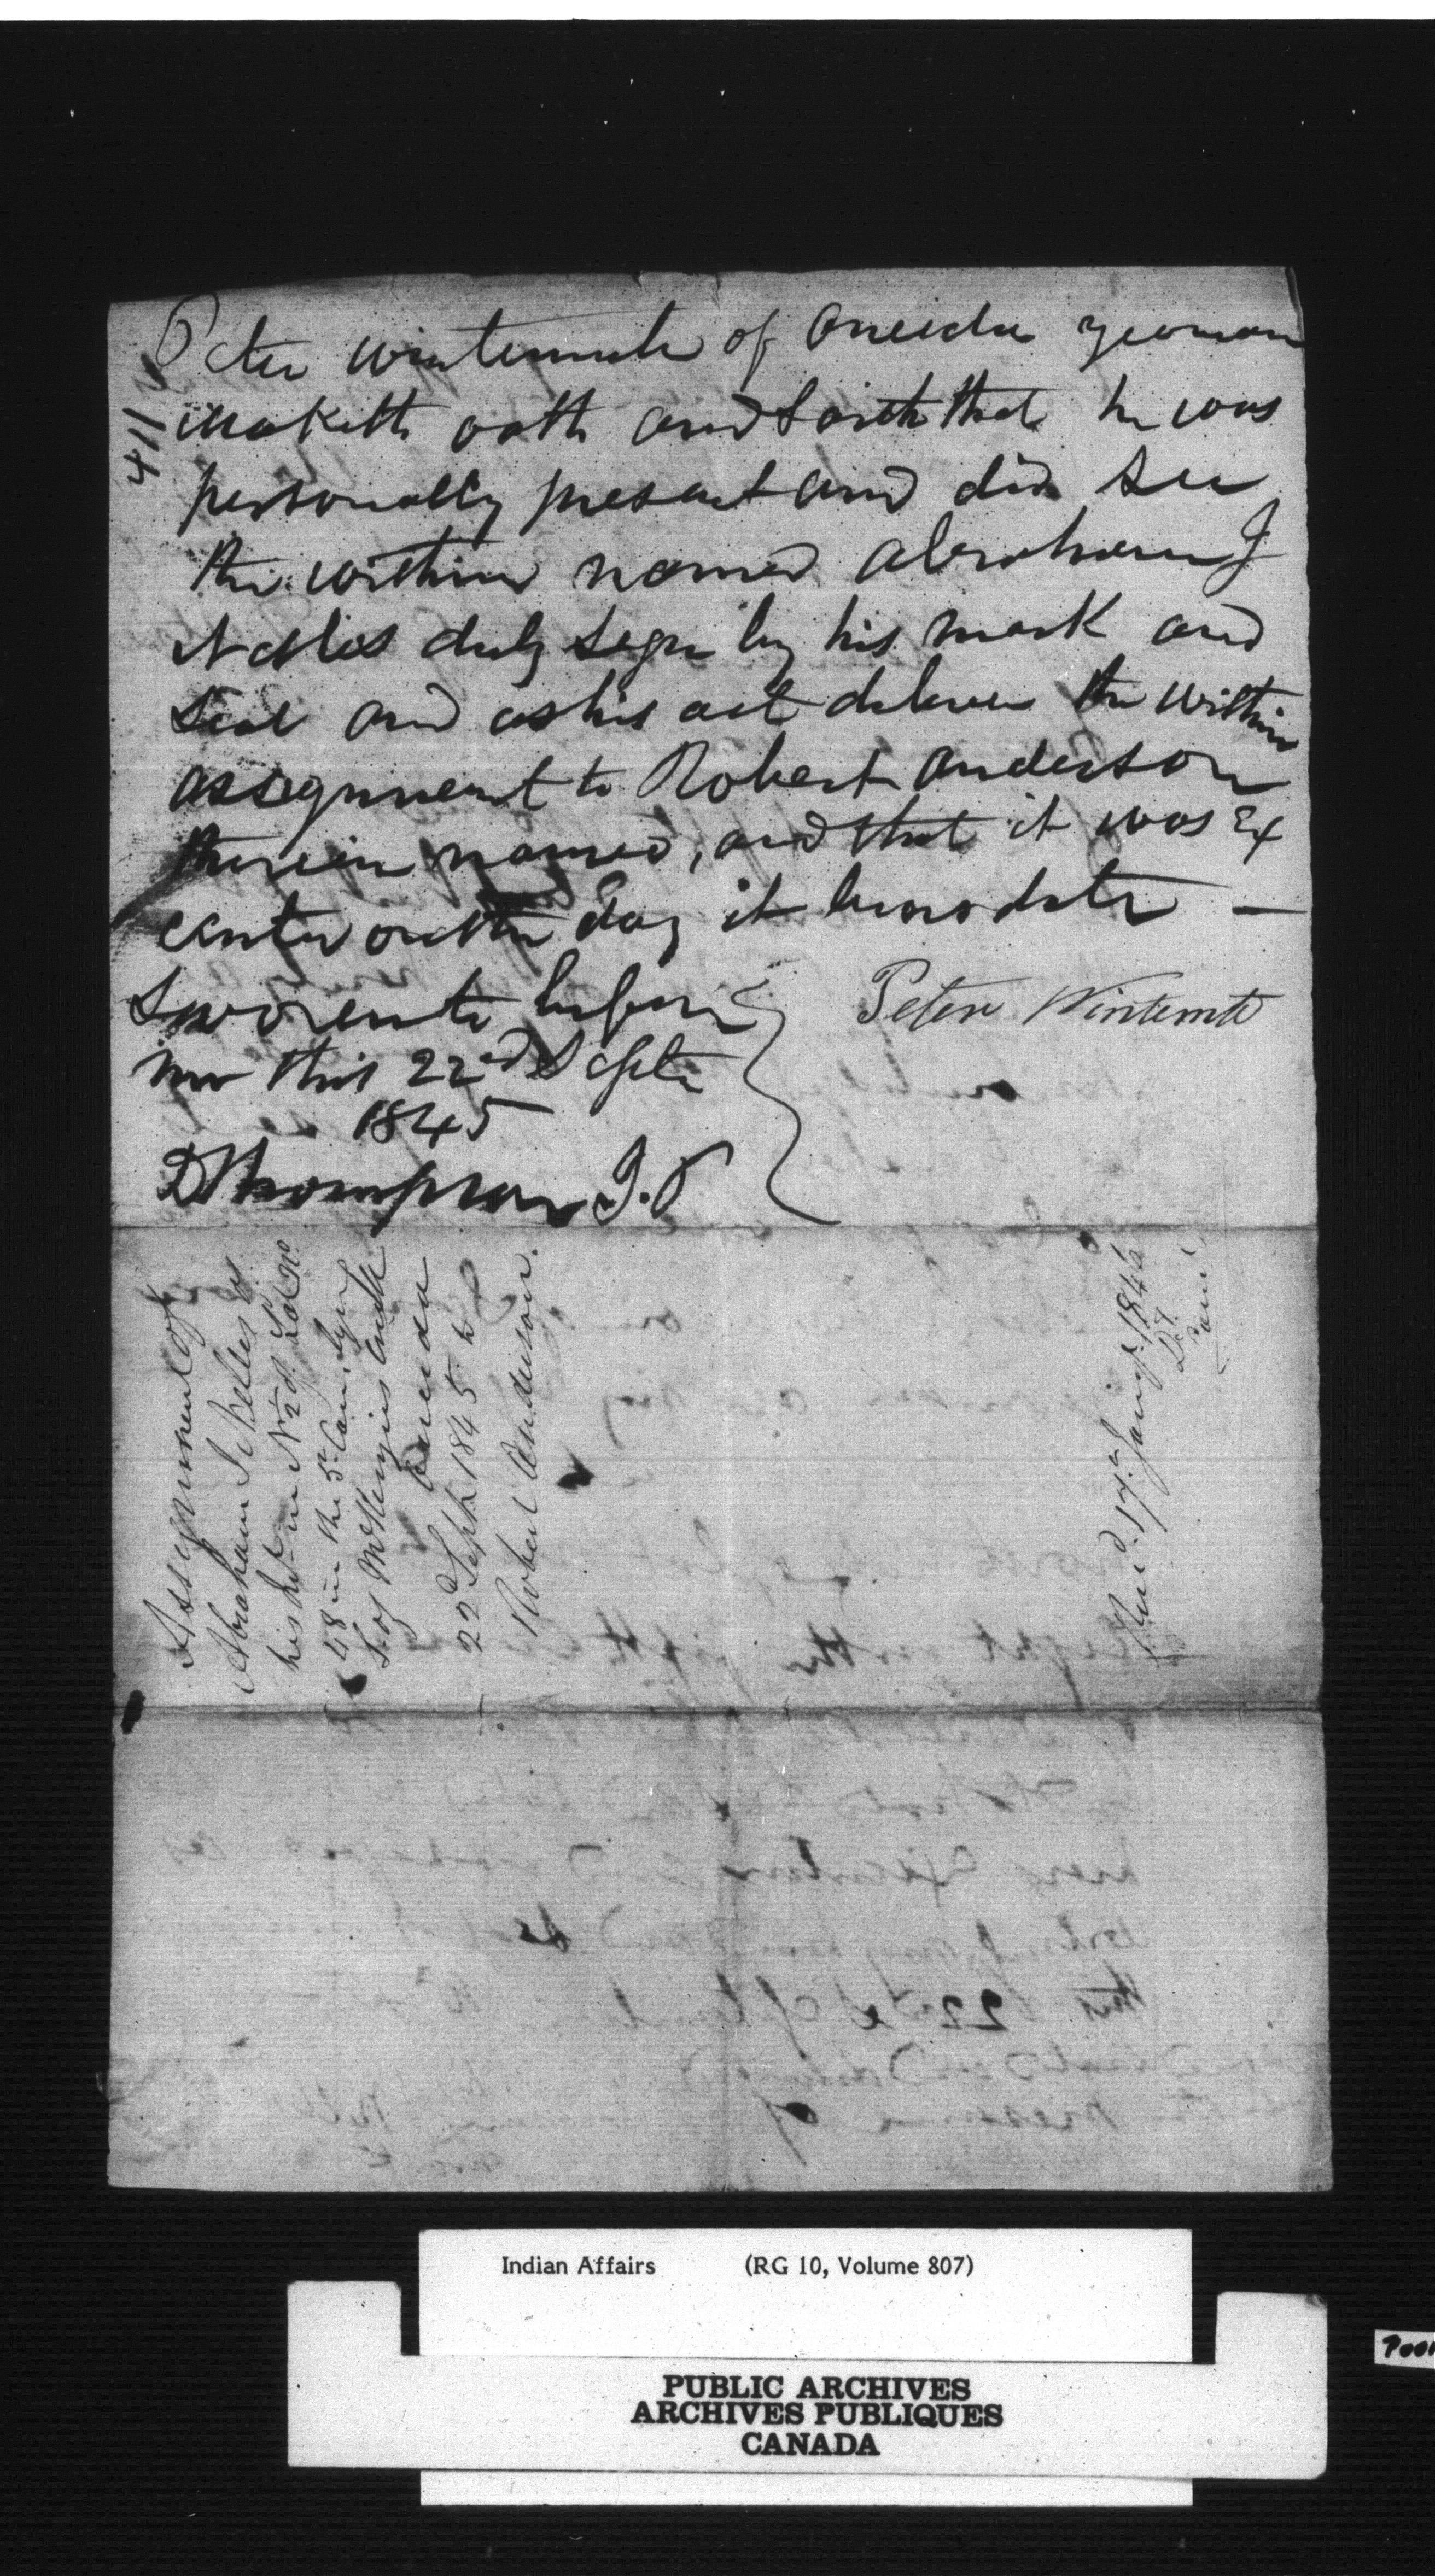 411
Peter Wintemute of Oneida yeoman
maketh oath and Saith that he was
personally present and did See
the within named Abraham J
Nelles duly Sign by his mark and
Seal and as his act deliver the within
assignment to Robert Anderson
therein named, and that it was Ex
ecuted on the day it bears date —
Sworn to before
me this 22nd Septr
1845
D Thompson J.P
Peter Wintemute
Assignment of
Abraham J Nelles as
his Lot in No 2 of Lot No
48 in the 5th Con.
S. of McKenzies Creek
Oneida
22d Septr. 1845 to
Robert Anderson.
Rec'd. 17th Jany. 1846
D.T.
Indian Affairs (RG 10, Volume 807)
PUBLIC ARCHIVES
ARCHIVES PUBLIQUES
CANADA